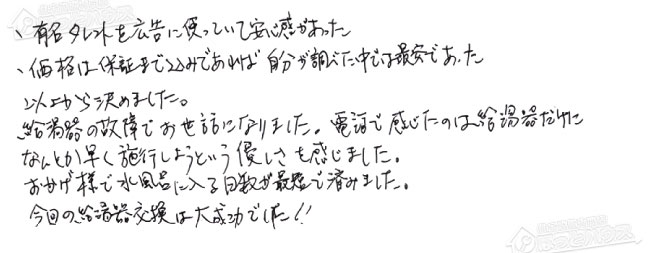 、有名タレントを広告に使っていて安心感があった
、価格は保証まで込みであれば自分が調べた中では最安であった
以上から決めました。
給湯器の故障でお世話になりました。電話で感じたのは給湯器だけに
なんとか早く施行しようという優しさを感じました。
おかげ様で水風呂に入る日数が最短で済みました。
今回の給湯器交換は大成功でした!!